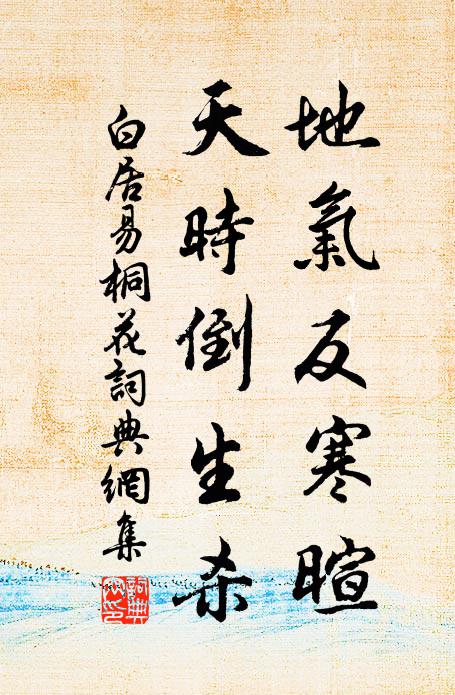 地氣反寒暄
天時倒生杀
白居易桐花詞典網集